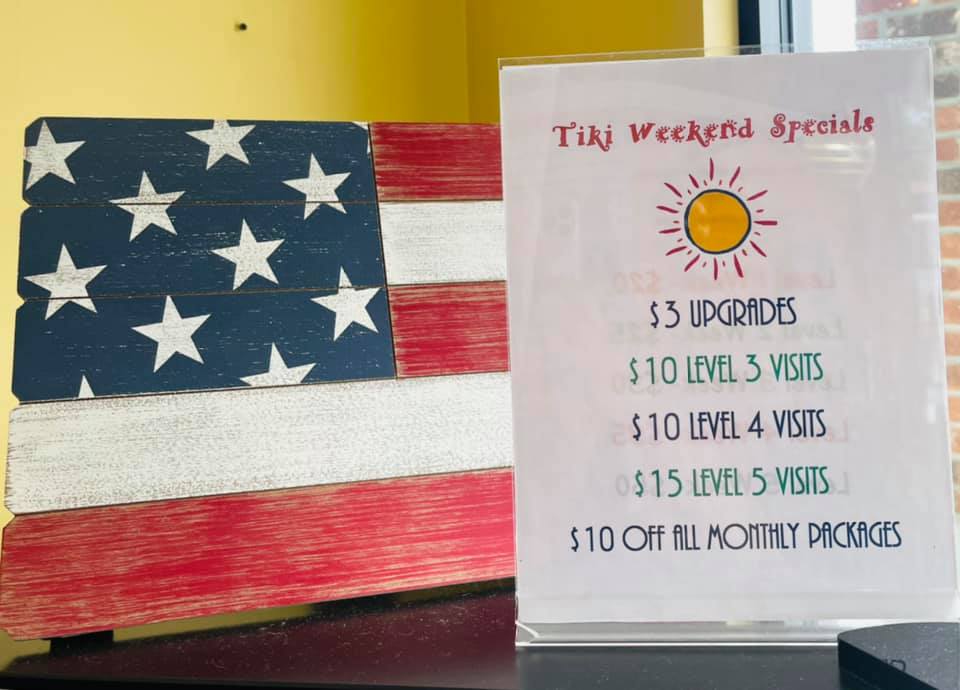 Tiki Weekend Specials
$3 UPGRADES
$10 LEVEL 3 VISITS
$10 LEVEL 4 VISITS
$15 LEVEL 5 VISITS
$10 OFF ALL MONTHLY PACKAGES